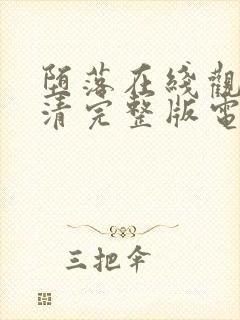 堕落在綫觀
清完整版電
三把伞